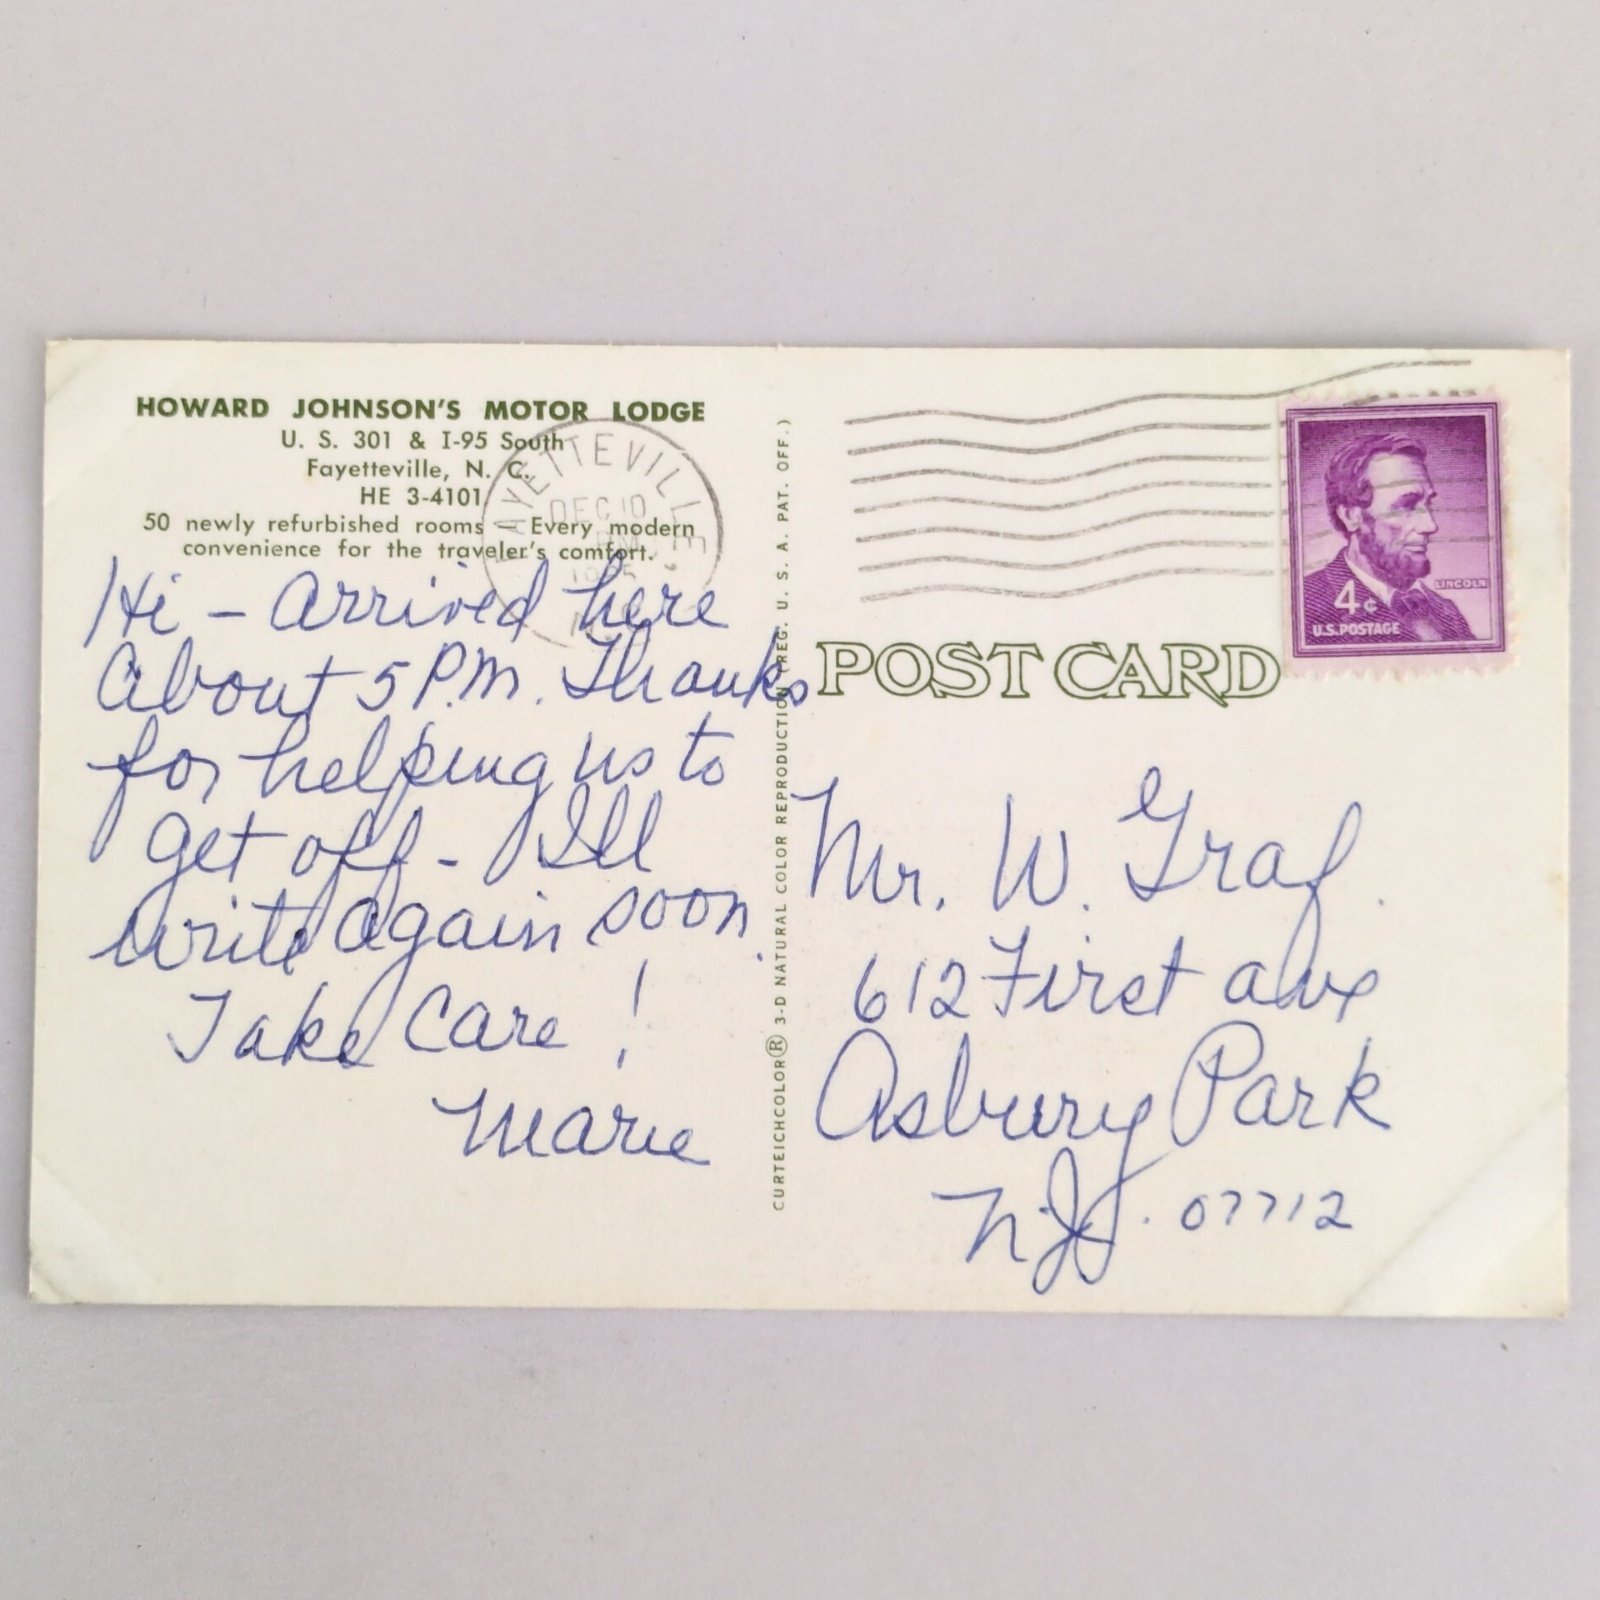 HOWARD JOHNSON'S MOTOR LODGE
U. S. 301 & I-95 South
Fayetteville, N. C.
HE 3-4101
50 newly refurbished rooms — Every modern
convenience for the traveler's comfort.
Hi – Arrived here
About 5 P.M. Thanks
for helping us to
get off – I'll
write again soon.
Take Care!
Marie
CURTEICHCOLOR® 3-D NATURAL COLOR REPRODUCTION (REG. U. S. A. PAT. OFF.)
FAYETTEVILLE
DEC 10
PM
LINCOLN
4¢
U.S. POSTAGE
POST CARD
Mr. W. Graf.
612 First Ave
Asbury Park
N.J. 07712